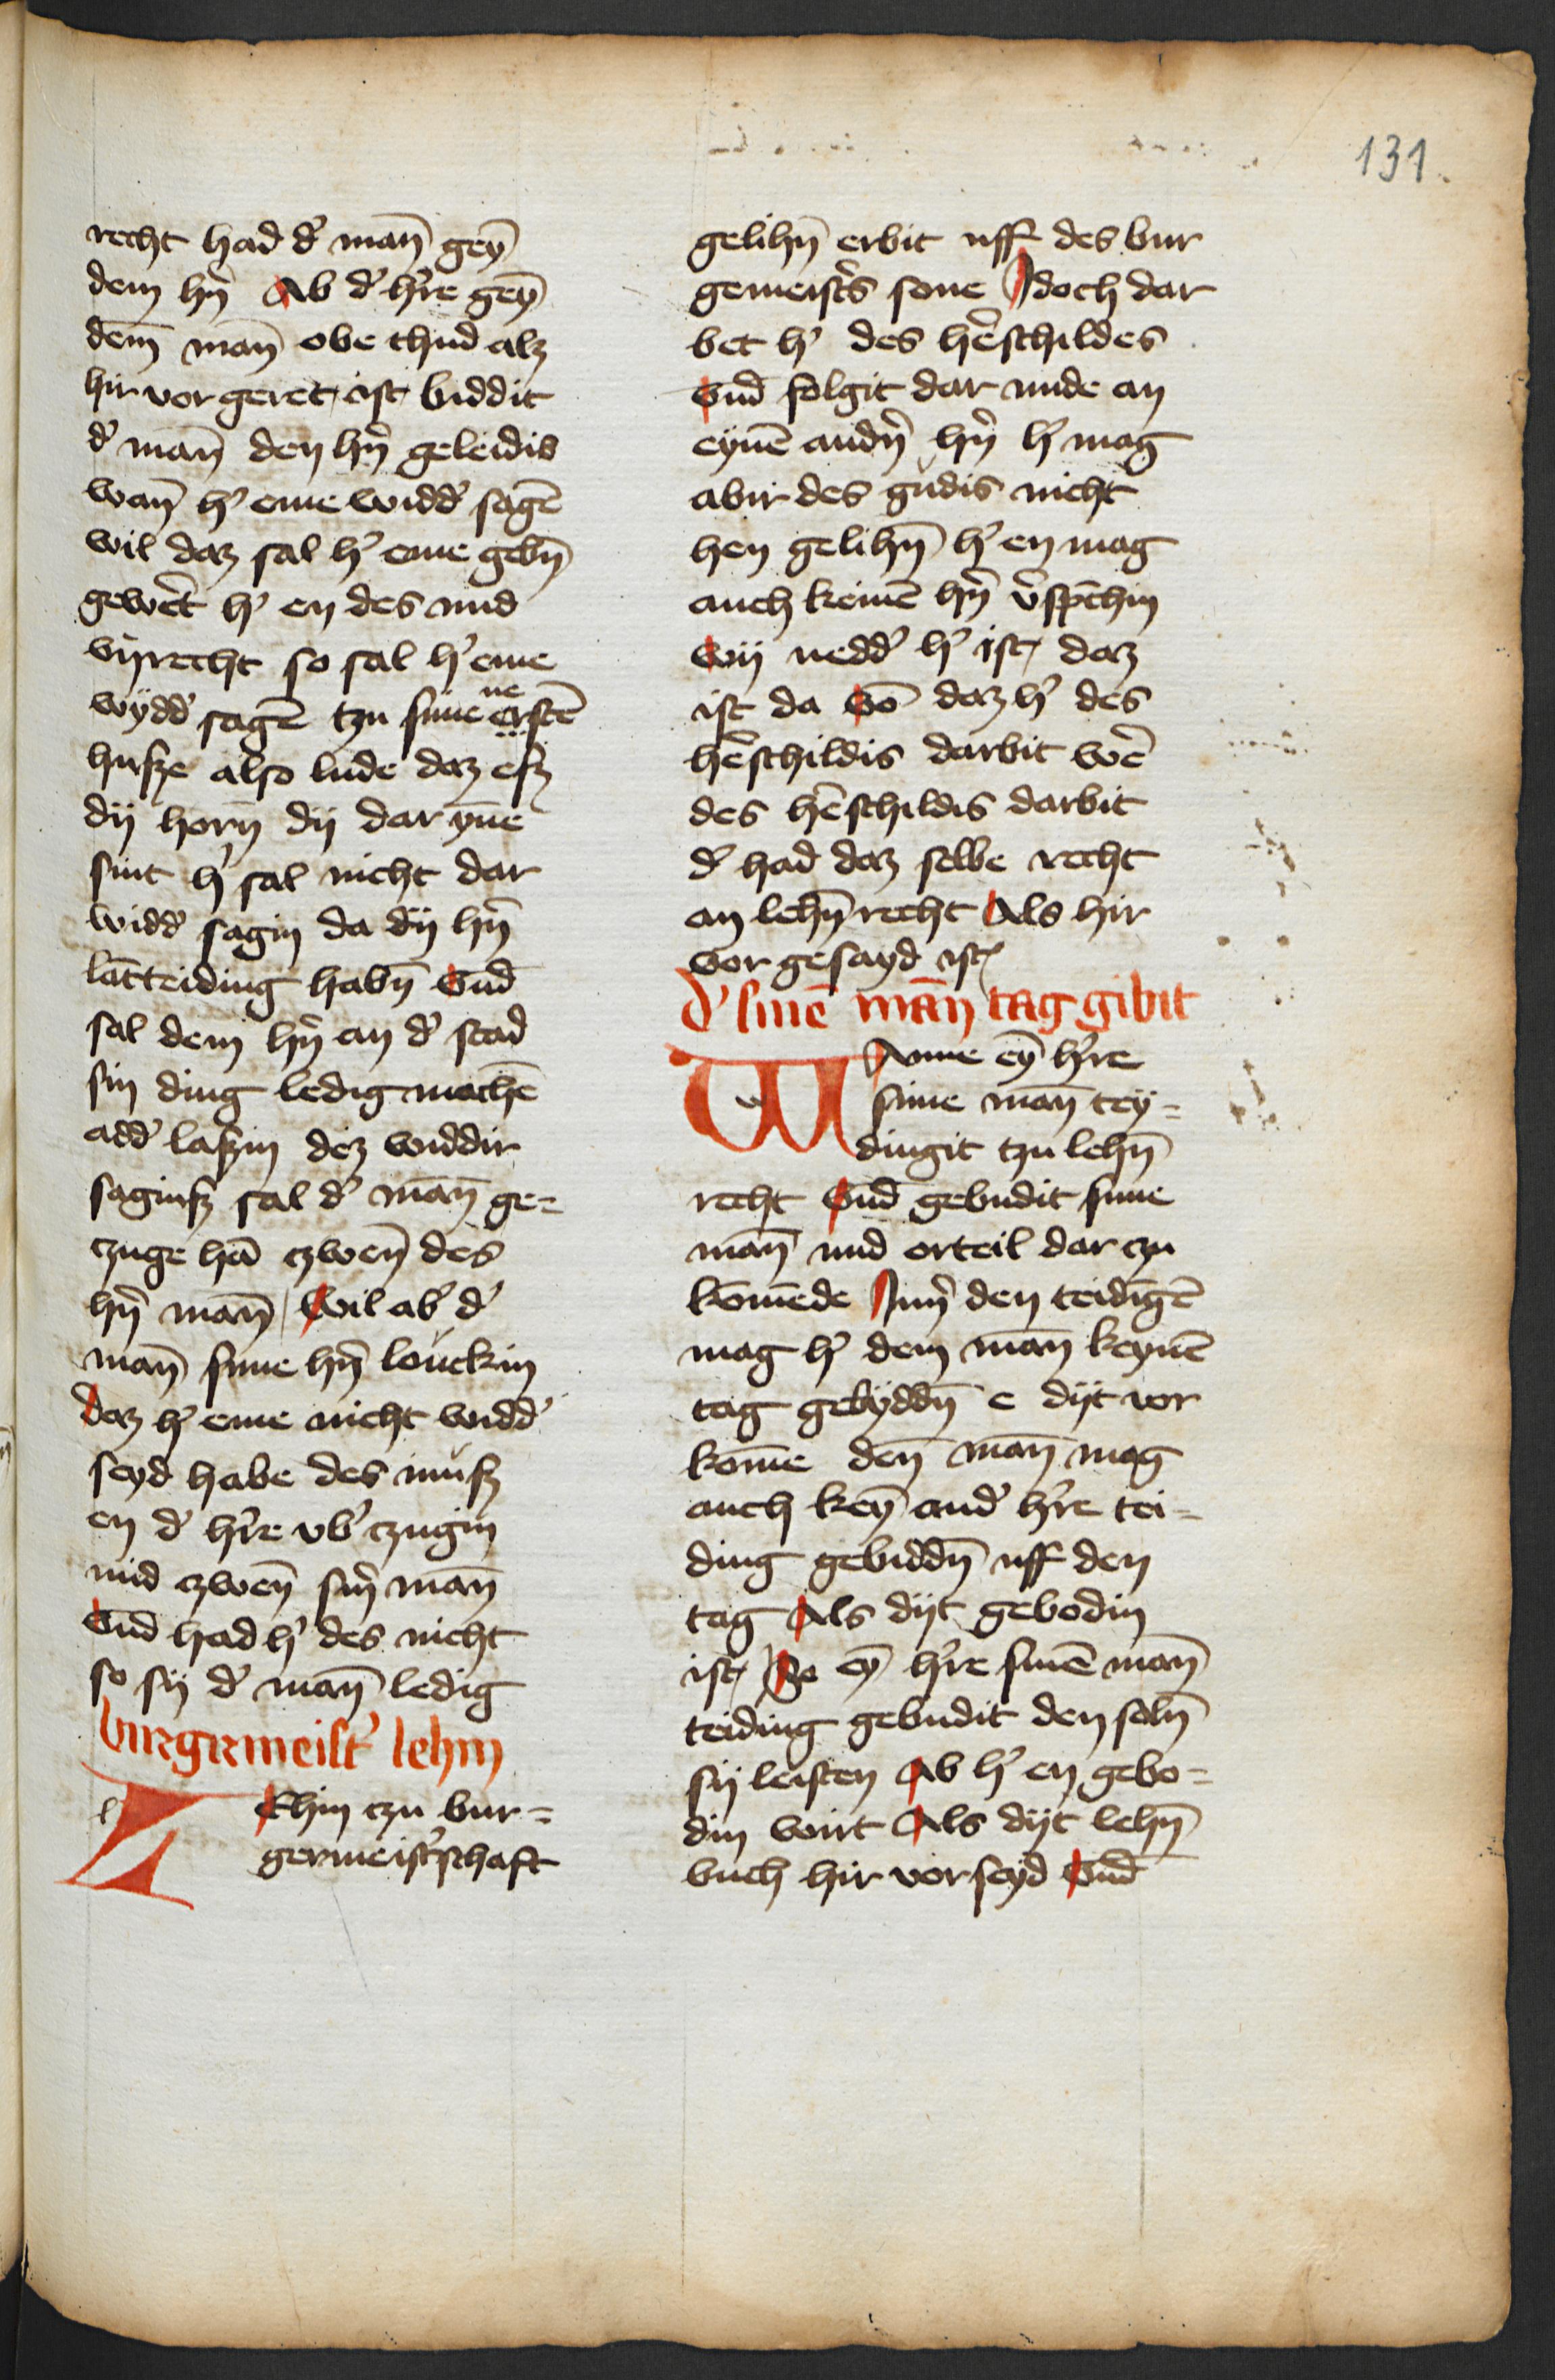 131.
recht had d' man̄ geȳ
dem hn̄ Ab d' h're geȳ
dem̄ man̄ obe thud alz
hir vor geret ist biddit
d' man̄ den hn̄ geleidis
wan̄ h' eme widd' sagē
wil daz sal h' eme gebn̄
gewēt h' en des mid
vnrecht so sal h' eme
wÿdd' sagē tzu sime ne erstē
husze also lude daz esz
dÿ horn̄ dÿ dar ȳne
sint h' sal nicht dar
widd' sagin da dÿ hn̄
lātteiding habn̄ Vnd̄
sal dem hn̄ an d' stad
sin ding ledig machē
add' laszin diz widdir
saginsz sal d' man̄ ge=
czuge hā czwen̄ des
hn̄ man̄ Wil ab' d'
man̄ sime hn̄ louckin
daz h' eme nicht widd'
seyd habe des musz
en d' h're vb' czugin
mid czwen̄ sin̄ man̄
Vnd had h' des nicht
so sÿ d' man̄ ledig
burgermeist' lehin
l
L Ehin czu bur=
germeist'schaft
gelihn̄ erbit uff des bur
gemeist's sone Idoch dar
bet h' des hēschildes
Vnd̄ folgit dar mide an
eynē andn̄ hn̄ h' mag
abir des gudis nicht
hen gelihn̄ h' en mag
auch keinē hn̄ v'sp̄chin
wÿ nedd' h' ist daz
ist da vō daz h' des
hēschildis darbit wē
des hēschildis darbit
d' had daz selbe recht
an lehn̄ recht Als hir
vor gesayd ist
d' sinē man̄ tag gibit
W Anne eȳ h're
sime man̄ tey=
dingit tzu lehn̄
recht Vnd̄ gebudit sime
man̄ mid orteil dar czu
kom̄ede Inn̄ den teidīgē
mag h' dem man̄ keynē
tag gebÿddn̄ e dÿt vor
kom̄e den̄ man̄ mag
auch keȳ and' h're tei=
ding gebiddn̄ uff den
tag Als dÿt gebodin
ist So eȳ h're sinē man̄
teiding gebudit den soln̄
sÿ leisten Ab h' en gebo=
din wirt Als dÿt lehn̄
buch hir vor seyd Vnd̄